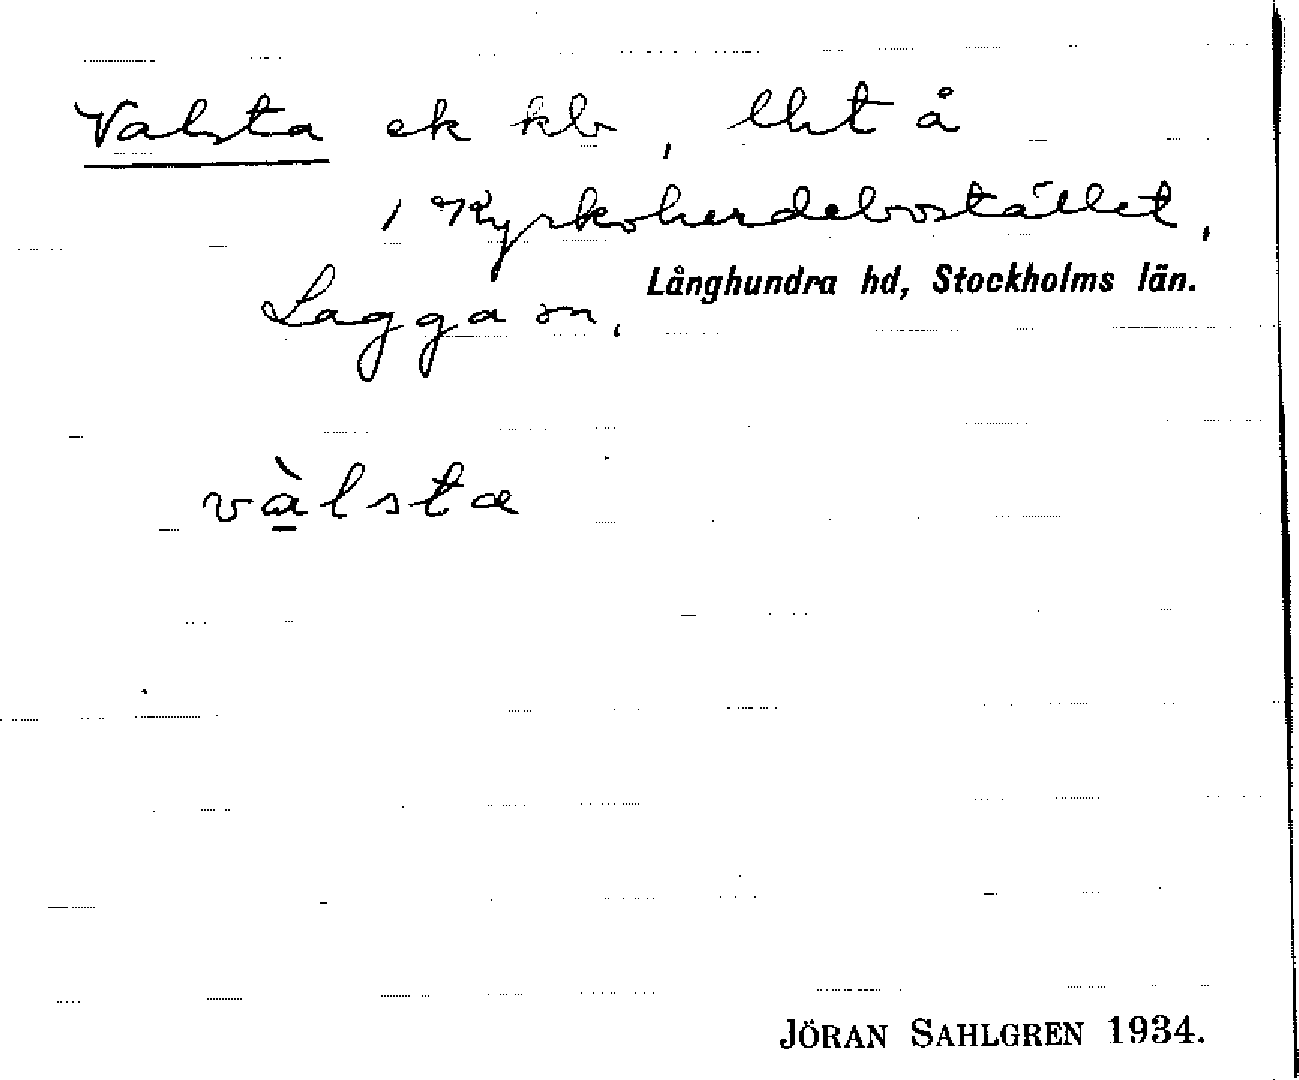 Valsta ek kb, lht å
1 Kyrkoherdebostället,
Lagga sn, Långhundra hd, Stockholms län.
vàlsta
JÖRAN SAHLGREN 1934.